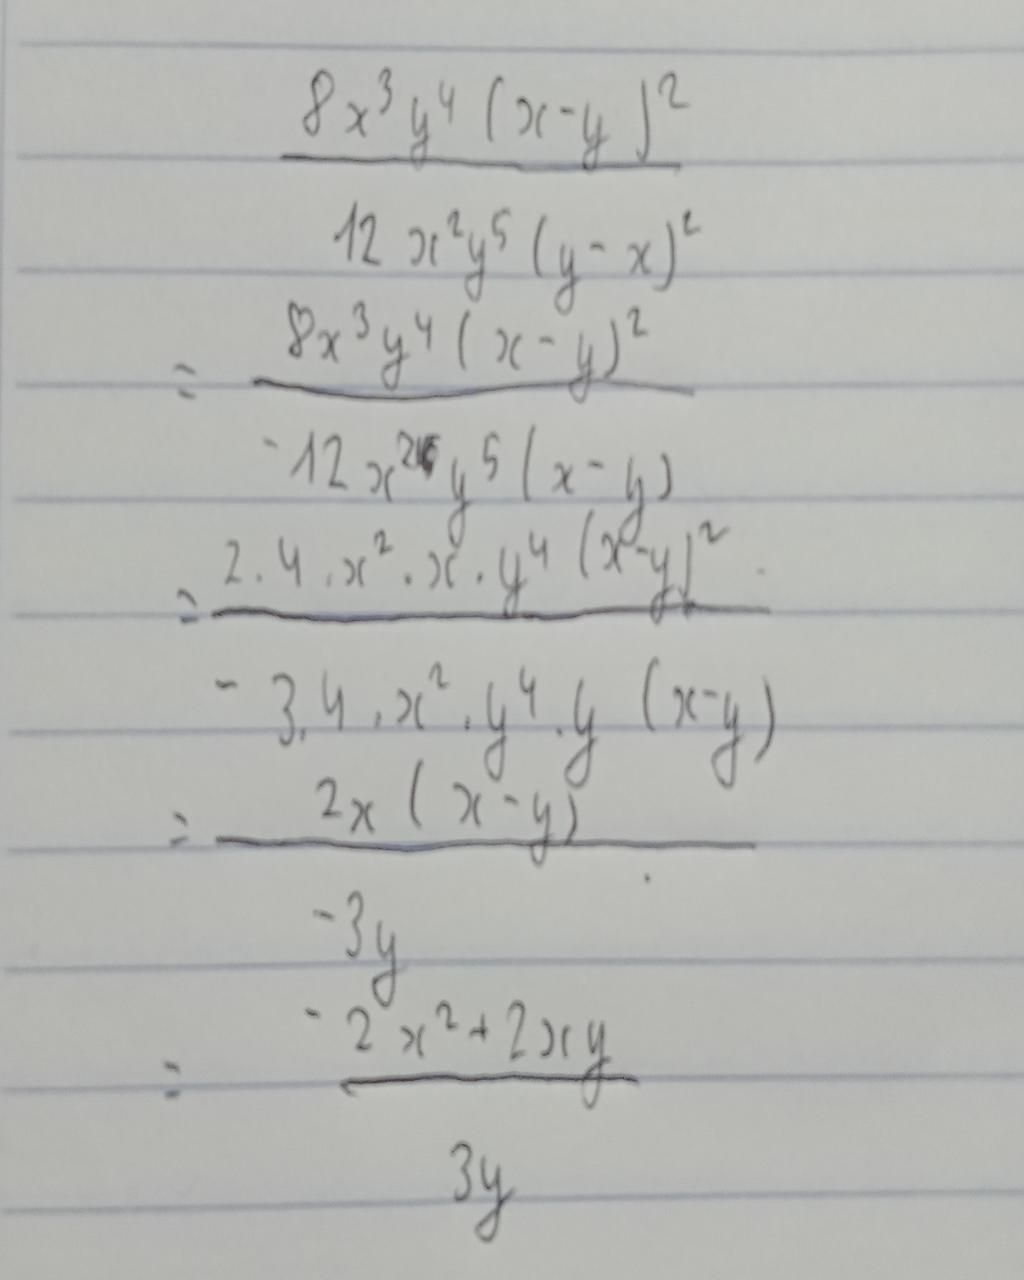 8x³y⁴(x-y)²
12x²y⁵(y-x)²
8x³y⁴(x-y)²
=
-12x²y⁵(x-y)
2.4.x².x.y⁴(x-y)²
=
-3.4.x².y⁴.y(x-y)
2x(x-y)
=
-3y
-2x²+2xy
=
3y